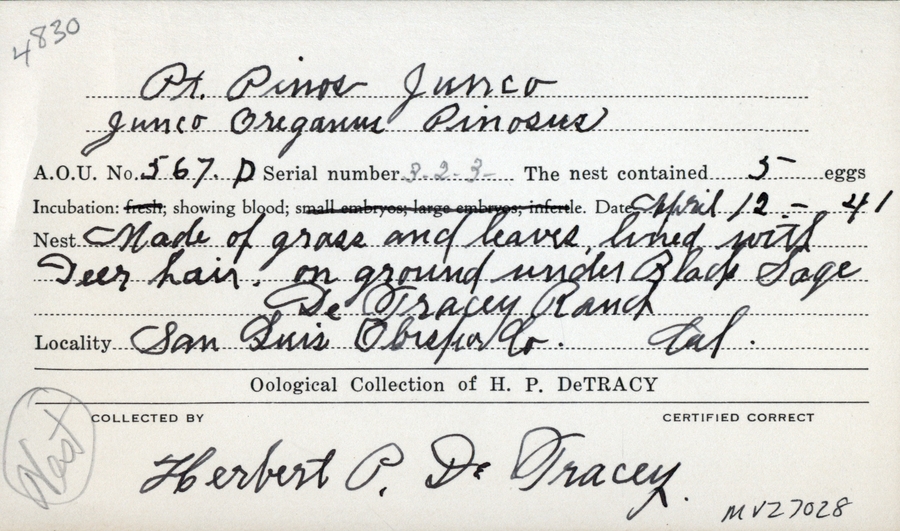 4830
Pt. Pinos Junco
Junco Oreganus Pinosus
A.O.U. No. 567. D Serial number 3-2-3- The nest contained 5 eggs
Incubation: fresh; showing blood; small embryos; large embryos; infertile. Date April 12 - 41
Nest Made of grass and leaves, lined with
Deer hair. on ground under Black Sage
De Tracey Ranch
Locality San Luis Obispo Co. Cal.
Oological Collection of H. P. DeTRACY
COLLECTED BY CERTIFIED CORRECT
Nest
Herbert P. De Tracey.
MVZ7028